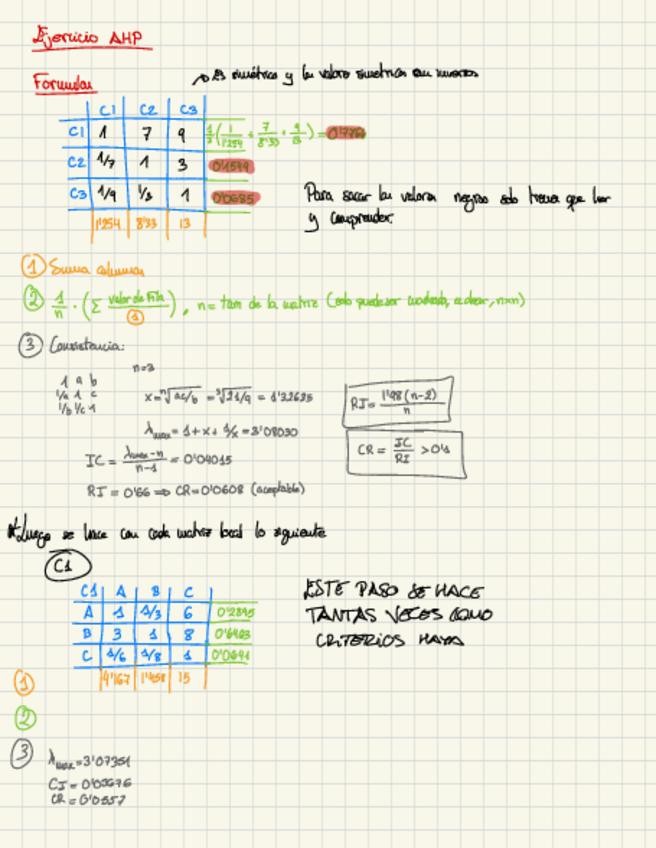 Ejercicio AHP
Formulas
→ Es simétrica y los valores simetricos son inversos
C1 C2 C3
C1 1 7 9 1/3 (1/1'254 + 7/8'33 + 9/13) =
C2 1/7 1 3 0'1549
C3 1/9 1/3 1 0'0685
1'254 8'33 13
Para sacar los valores negros solo tienes que leer
y comprender.
1 Suma columnas
2 1/n · (Σ valor de fila / 1), n = tam de la matriz (solo puede ser cuadrada, nxn)
3 Consistencia:
n=3
1 a b
1/a 1 c
1/b 1/c 1
x = ⁿ√ac/b = ³√21/9 = 1'32635
λmax = 1 + x + 1/x = 3'08030
IC = λmax-n / n-1 = 0'04015
RI = 0'66 => CR = 0'0608 (aceptable)
RI = 1'98 (n-2) / n
CR = IC / RI > 0'1
*Luego se hace con cada matriz local lo siguiente
C1
C1 A B C
A 1 1/3 6 0'2895
B 3 1 8
C 1/6 1/8 1
4'167 1'458 15
ESTE PASO SE HACE
TANTAS VECES COMO
CRITERIOS HAYA
1
2
3 λmax = 3'07351
CI = 0'03676
CR = 0'0557